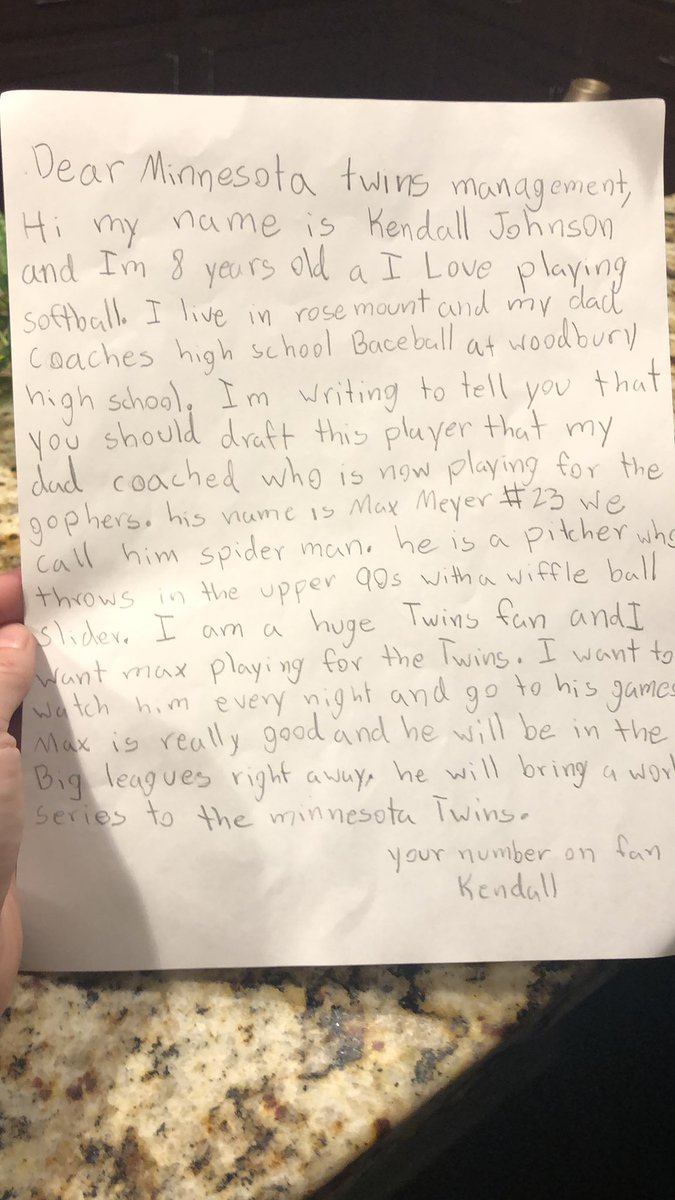 Dear Minnesota twins management,
Hi my name is Kendall Johnson
and Im 8 years old a I Love playing
softball. I live in rosemount and my dad
coaches high school Baceball at woodbury
high school. Im writing to tell you that
you should draft this player that my
dad coached who is now playing for the
gophers. his name is Max Meyer #23 we
call him spider man. he is a pitcher who
throws in the upper 90s with a wiffle ball
slider. I am a huge Twins fan and I
want max playing for the Twins. I want to
watch him every night and go to his games
Max is really good and he will be in the
Big leagues right away. he will bring a worl
series to the minnesota Twins.
your number on fan
Kendall